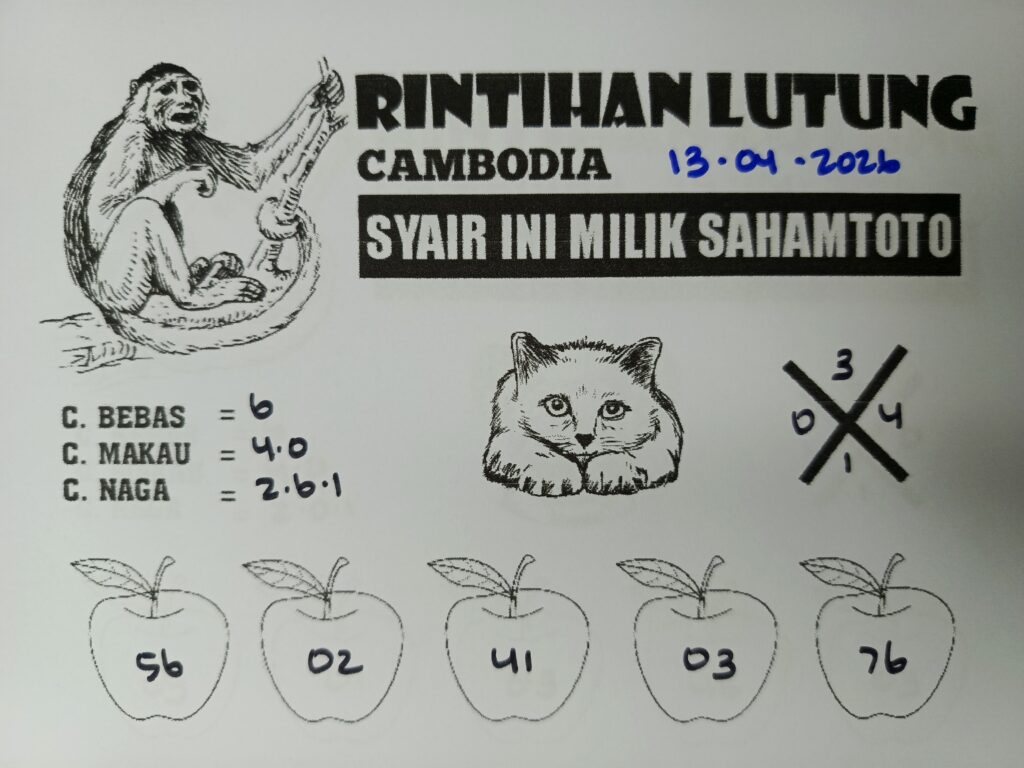 RINTIHAN LUTUNG
CAMBODIA 13·04·2026
SYAIR INI MILIK SAHAMTOTO
C. BEBAS = 6
C. MAKAU = 4·0
C. NAGA = 2·6·1
3
0 4
1
56 02 41 03 76